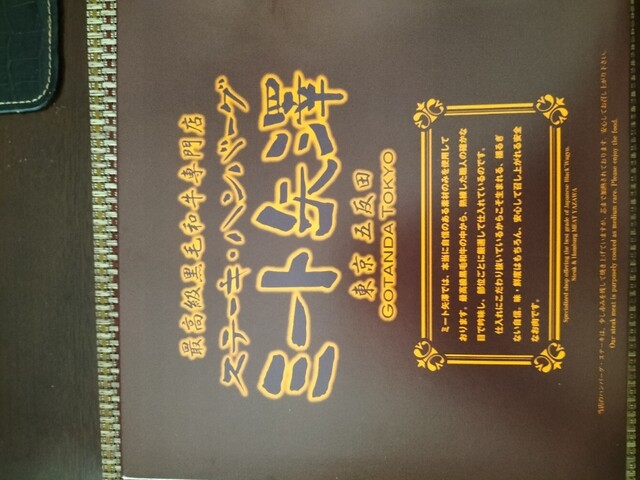 最高級黒毛和牛専門店
ステーキ・ハンバーグ
ミート矢澤
東京 五反田
GOTANDA TOKYO
ミート矢澤では、本当に自信のある素材のみを使用して
おります。最高級黒毛和牛の中から、熟練した職人の確かな
目で吟味し、部位ごとに厳選して仕入れているのです。
仕入れにこだわり抜いているからこそ生まれる、揺るぎ
ない自信。味・鮮度はもちろん、安心して召し上がれる安全
なお肉です。
Specialized shop offering the best grade of Japanese Black Wagyu.
Steak & Hamburg MEAT YAZAWA
当店のハンバーグ・ステーキは、少し赤みを残して焼き上げていますが、芯まで加熱されております。安心してお召し上がり下さい。
Our steak meat is purposely cooked as medium rare. Please enjoy the food.